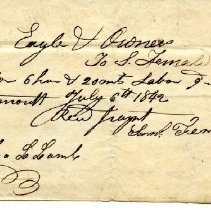 Eagle & Owners
To S. Temale
6 hou & 20 mts Labor
mouth July 6th 1842
Recd Paymt
Saml Tem
L Lamb